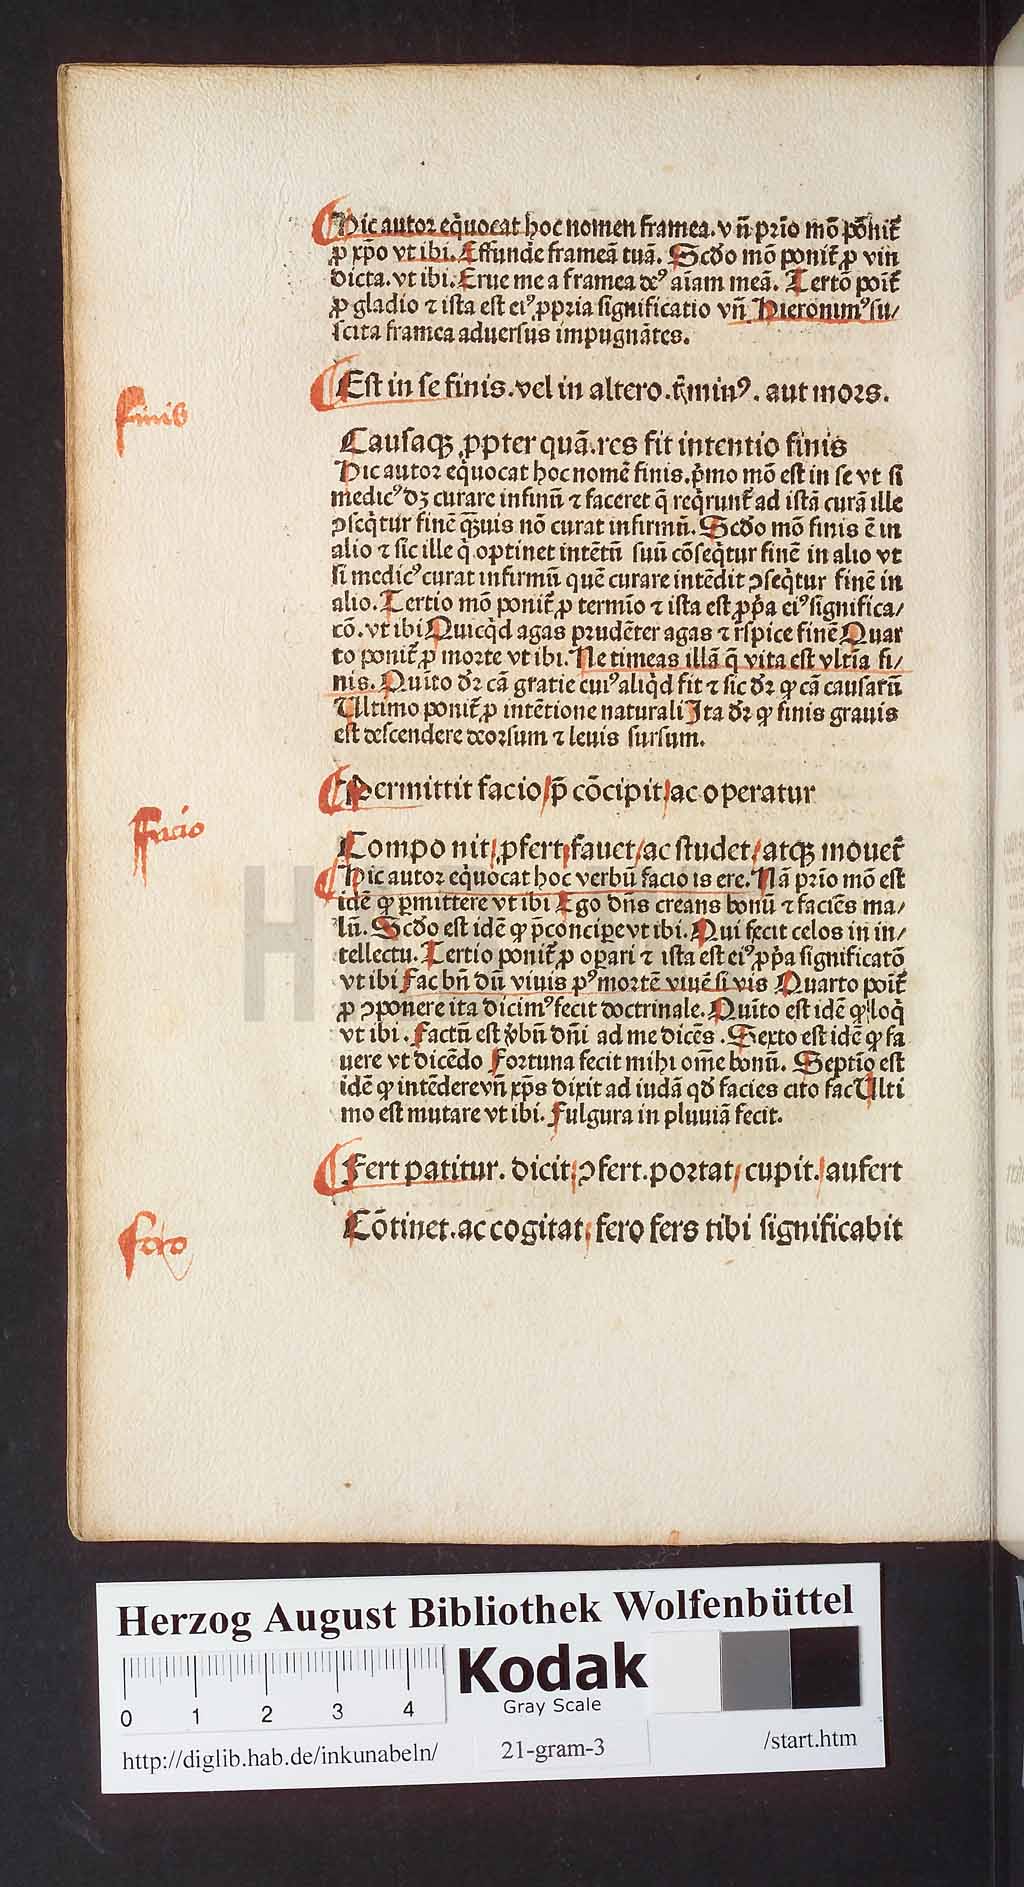 Hic autor eq̇uocat hoc nomen framea. vn̄ prīo mō pōnit᷑
ꝓ xp̄o vt ibi. Effunde frameā tuā. Scd̓o mō ponit᷑ ꝓ vin
dicta. vt ibi. Erue me a framea deꝰ aīam meā. Tertō poit᷑
ꝓ gladio ⁊ ista est eiꝰ ꝓpria significatio vn̄ Hieronimꝰ su/
scita framea aduersus impugnātes.
finis
Est in se finis. vel in altero. t᷑minꝰ. aut mors.
Causaqꝫ ꝓpter quā. res fit intentio finis
Hic autor eq̇uocat hoc nomē finis. p̄mo mō est in se vt si
medicꝰ dꝫ curare infirmū ⁊ faceret q̄ req̇runt᷑ ad istā curā ille
ꝯseq̇tur finē qꝫuis nō curat infirmū. Scd̓o mō finis ē in
alio ⁊ sic ille q̇ optinet intētū suū cōseq̇tur finē in alio vt
si medicꝰ curat infirmū quē curare intēdit ꝯseq̇tur finē in
alio. Tertio mō ponit᷑ ꝓ termīo ⁊ ista est ꝓp̄a eiꝰ significa/
tō. vt ibi Quicq̇d agas prudēter agas ⁊ r̄spice finē Quar
to ponit᷑ ꝓ morte vt ibi. Ne timeas illā q̄ vita est vltīa fi/
nis. Quīto dr̄ cā gratie cuiꝰ aliq̇d fit ⁊ sic dr̄ ꝙ cā causarū
Ultimo ponit᷑ ꝓ intētione naturali Ita dr̄ ꝙ finis grauis
est descendere deorsum ⁊ leuis sursum.
Facio
Permittit facio/ p̄ cōcipit/ ac operatur
Compo nit/ ꝓfert/ fauet/ ac studet/ atqꝫ mouet᷑
Hic autor eq̇uocat hoc verbū facio is ere. Nā prīo mō est
idē ꝙ ꝑmittere vt ibi Ego dn̄s creans bonū ⁊ faciēs ma/
lū. Scd̓o est idē ꝙ p̄concipe vt ibi. Qui fecit celos in in/
tellectu. Tertio ponit᷑ ꝓ oꝑari ⁊ ista est eiꝰ ꝓp̄a significatō
vt ibi fac bn̄ dū viuis pꝰ mortē viuē si vis Quarto poit᷑
ꝓ ꝯponere ita dicimꝰ fecit doctrinale. Quīto est idē ꝙ loq̇
vt ibi. factū est v̓bū dn̄i ad me dicēs. Sexto est idē ꝙ fa
uere vt dicēdo Fortuna fecit mihi om̄e bonū. Septīo est
idē ꝙ intēdere vn̄ xp̄s dixit ad iudā qd̓ facies cito fac Ulti
mo est mutare vt ibi. Fulgura in pluuiā fecit.
Fert patitur. dicit/ ꝯfert. portat/ cupit./ aufert
fero
Cōtinet. ac cogitat/ fero fers tibi significabit
HAB
Herzog August Bibliothek Wolfenbüttel
Kodak
Gray Scale
0 1 2 3 4
http://diglib.hab.de/inkunabeln/ 21-gram-3 /start.htm